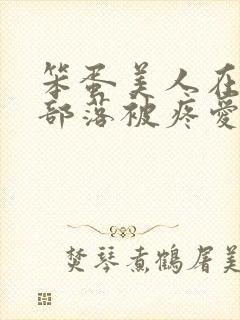 笨蛋美人在
部落被疼爱
焚琴煮鹤屠美